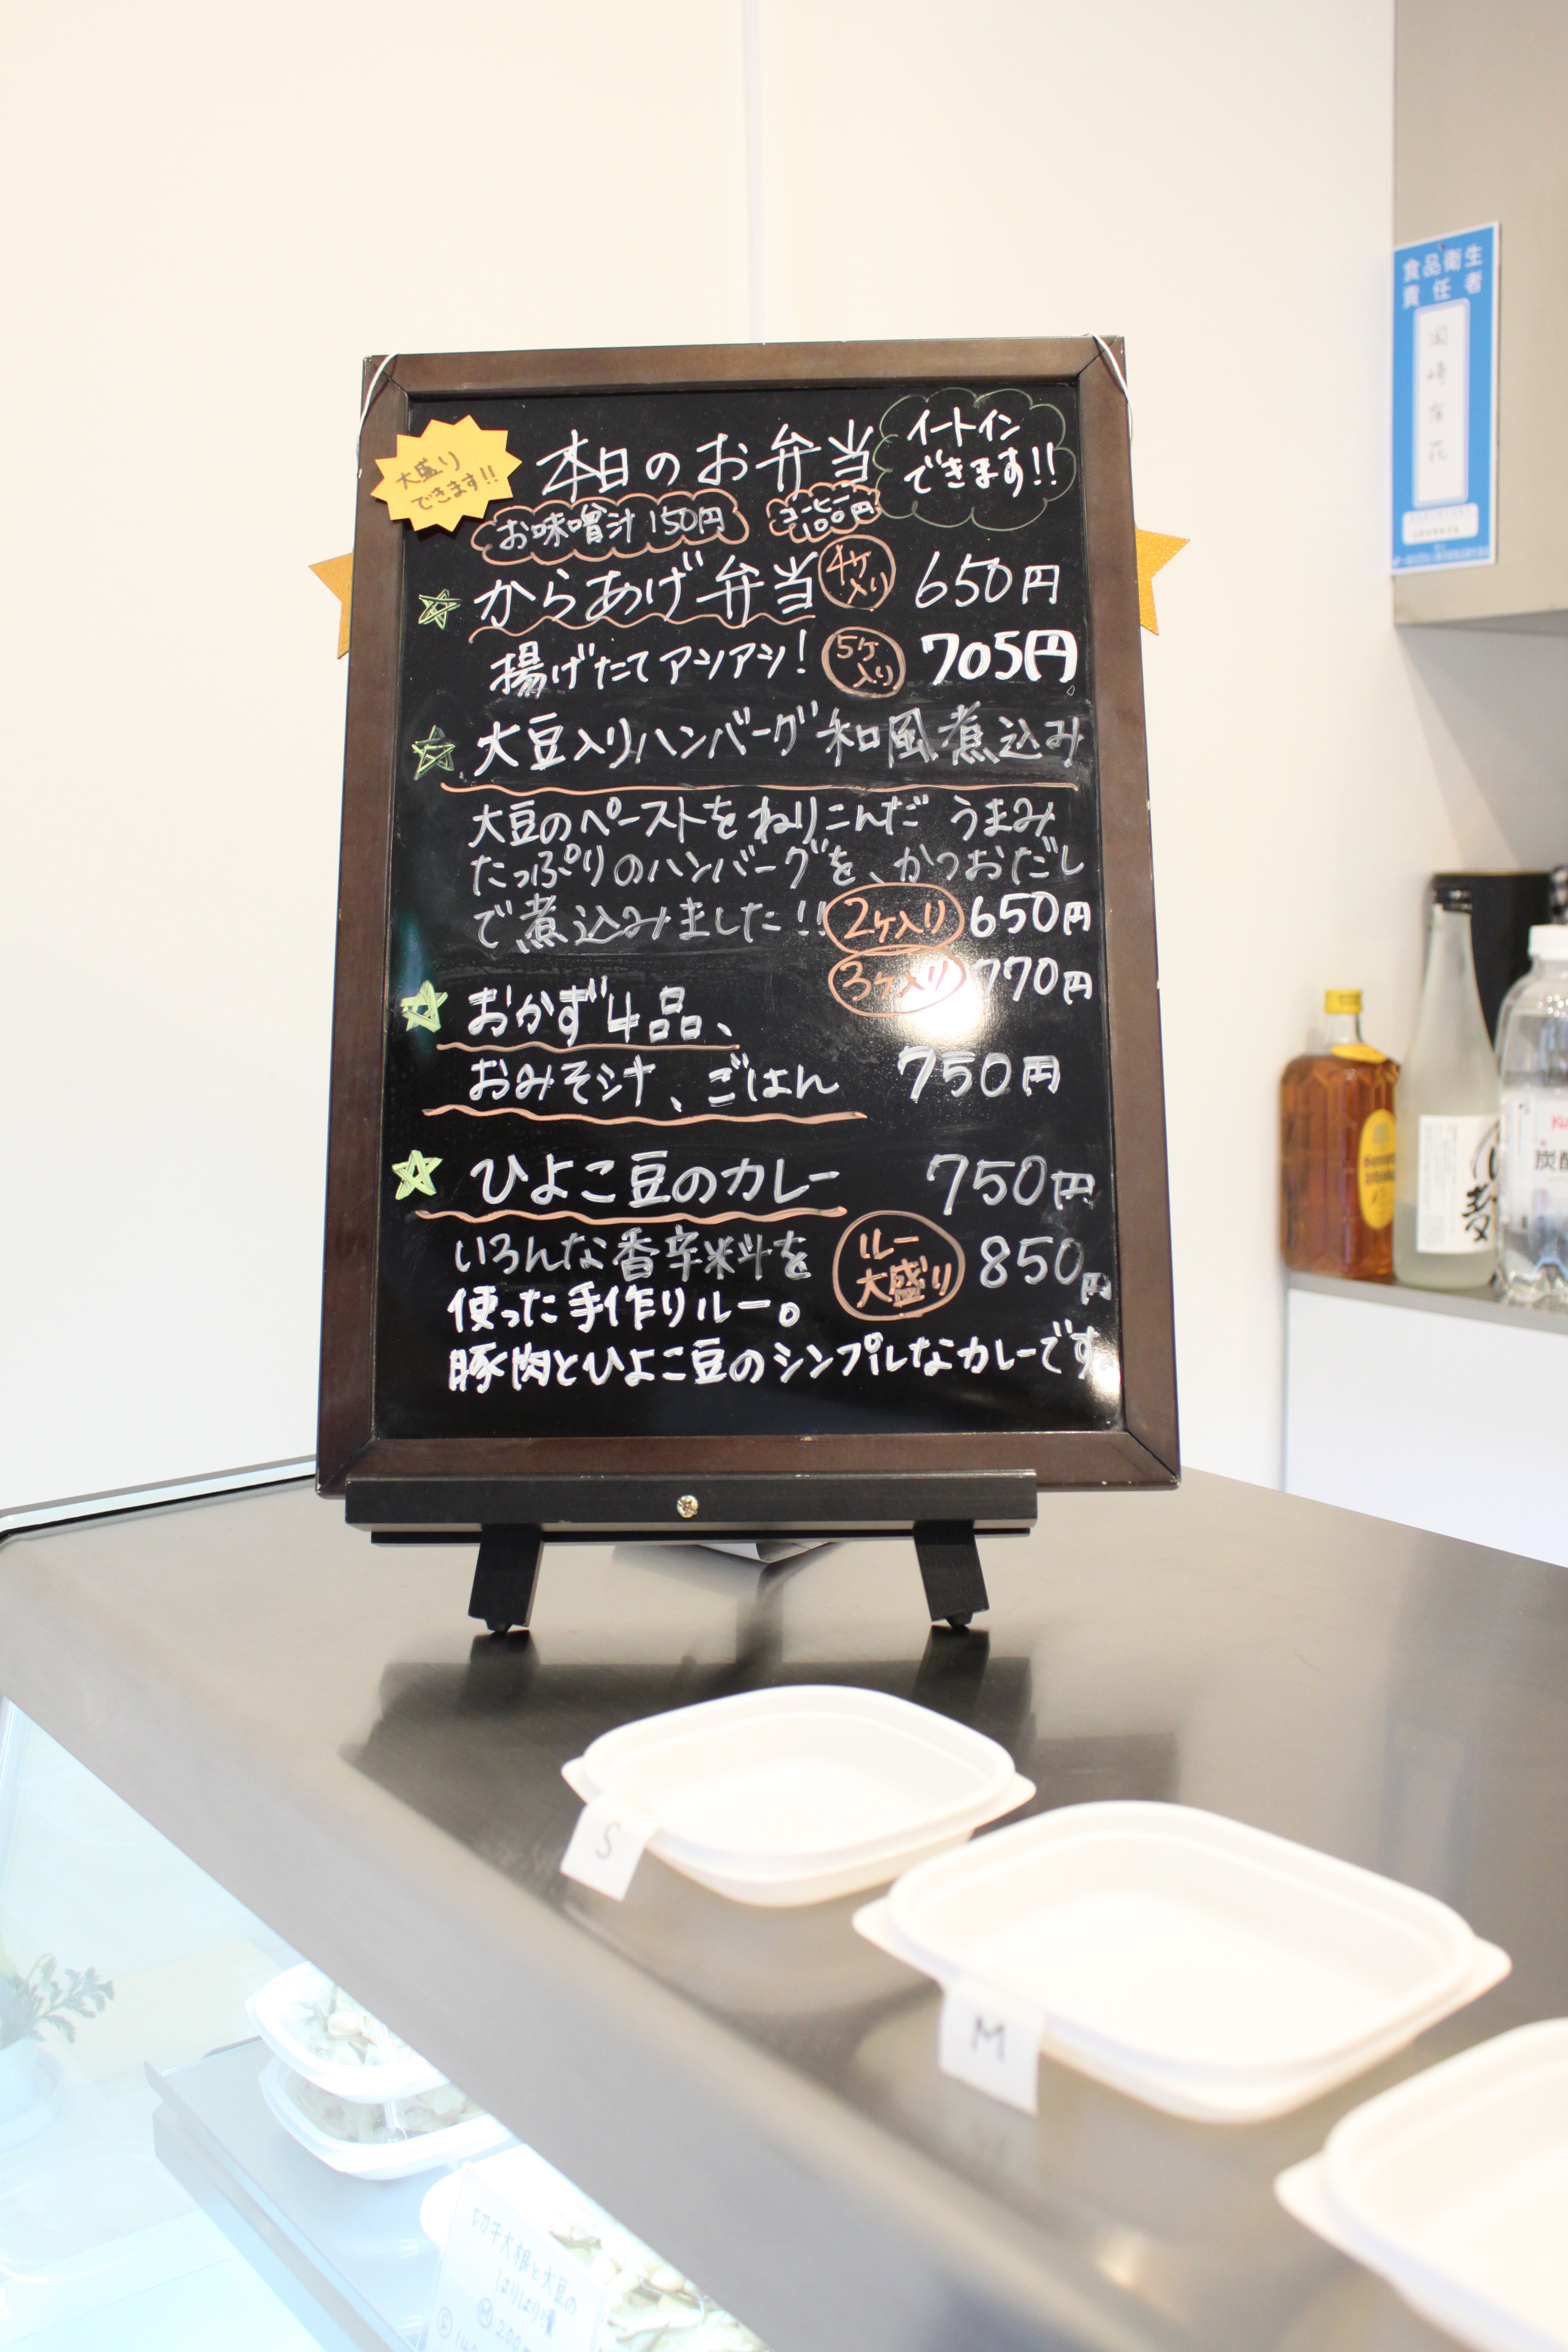 大盛り
できます!!
本日のお弁当
イートイン
できます!!
お味噌汁 150円
コーヒー
100円
からあげ弁当
4ケ
入り
650円
揚げたてアツアツ!
5ケ
入り
705円
大豆入りハンバーグ 和風煮込み
大豆のペーストをねりこんだ うまみ
たっぷりのハンバーグを、かつおだし
で煮込みました!!
2ケ入り 650円
3ケ入り 770円
おかず4品、
おみそ汁、ごはん 750円
ひよこ豆のカレー 750円
いろんな香辛料を
使った手作りルー。
ルー
大盛り
850円
豚肉とひよこ豆のシンプルなカレーです。
食品衛生
責任者
麦
S
M
切干大根と大豆の
はりはり漬
M 200